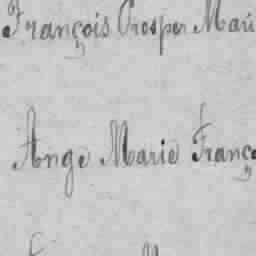 François Prosper Mari
Ange Marie Franç